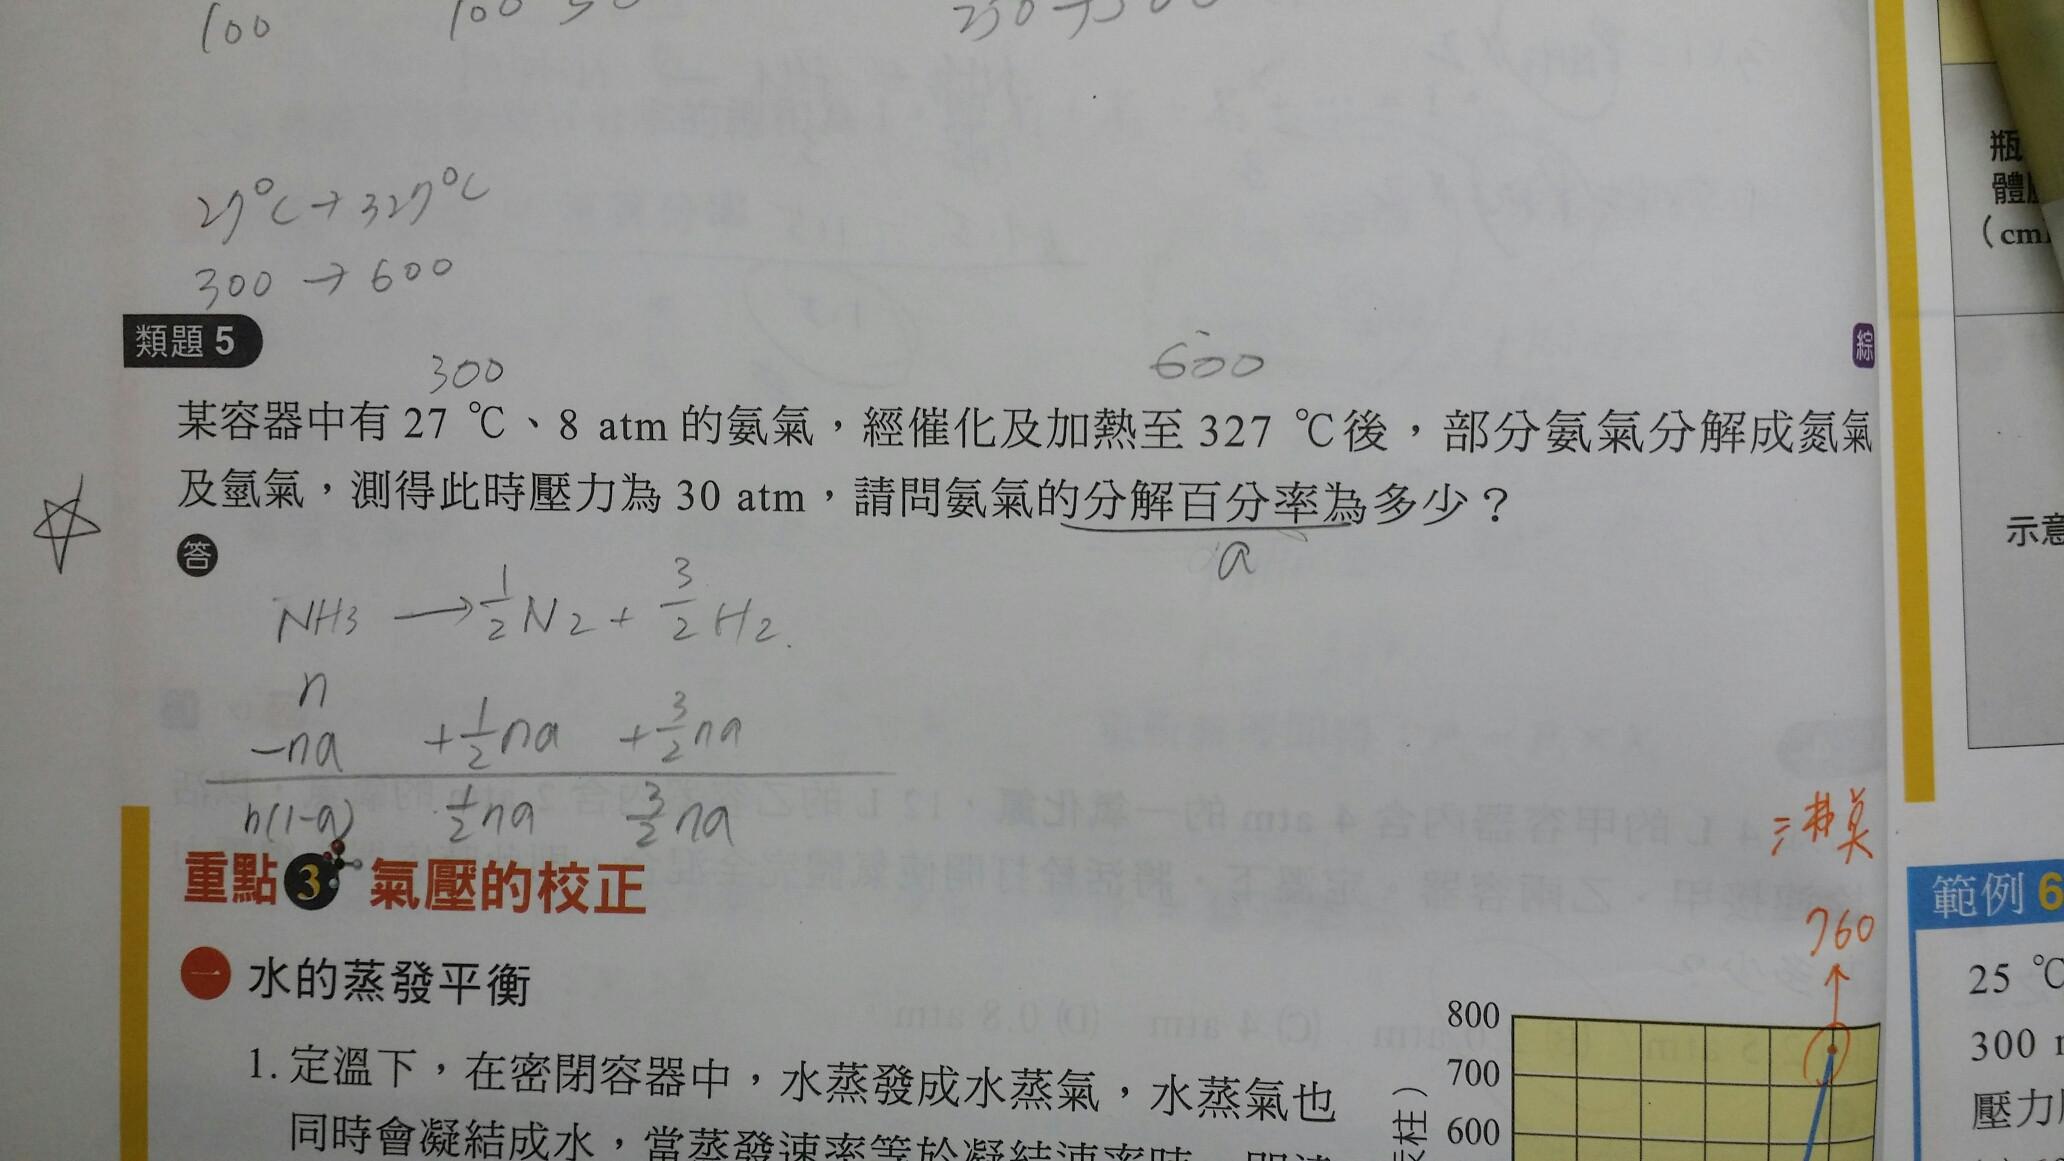 100
27°C → 327°C
300 → 600
類題 5
綜
300
600
某容器中有 27 ℃、8 atm 的氨氣，經催化及加熱至 327 ℃後，部分氨氣分解成氮氣
及氫氣，測得此時壓力為 30 atm，請問氨氣的分解百分率為多少？
a
答
NH3 → 1/2 N2 + 3/2 H2
n
-na +1/2na +3/2na
n(1-a) 1/2na 3/2na
重點 3 氣壓的校正
一 水的蒸發平衡
1. 定溫下，在密閉容器中，水蒸發成水蒸氣，水蒸氣也
同時會凝結成水，當蒸發速率等於凝結速率時，
760
800
700
600
柱）
瓶
體
(cm
示意
範例 6
25 ℃
300
壓力